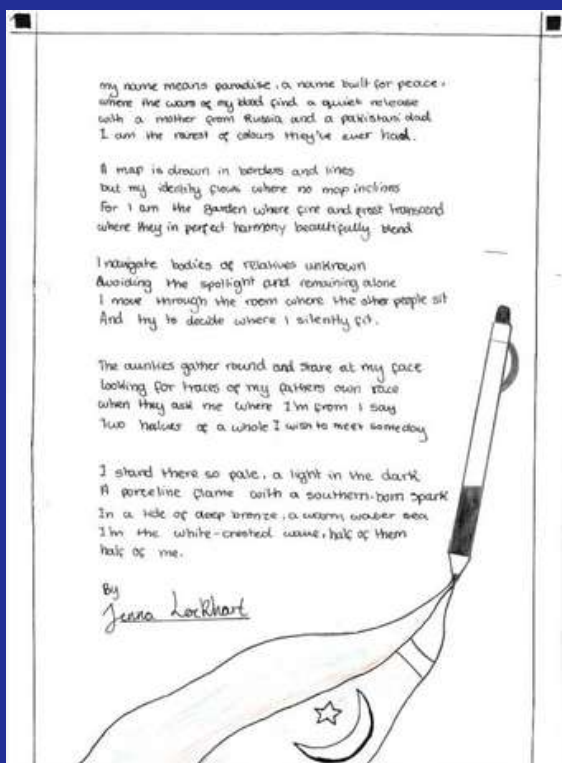 my name means paradise, a name built for peace,
where the wars of my blood find a quiet release
with a mother from Russia and a pakistani dad
I am the rarest of colours they've ever had.
A map is drawn in borders and lines
but my identity flows where no map inclines
For I am the garden where fire and frost transcend
where they in perfect harmony beautifully blend
I navigate bodies of relatives unknown
Avoiding the spotlight and remaining alone
I move through the room where the other people sit
And try to decide where I silently fit.
The aunties gather round and stare at my face
looking for traces of my fathers own race
when they ask me where I'm from I say
Two halves of a whole I wish to meet someday
I stand there so pale, a light in the dark
A porceline flame with a southern-born spark
In a tide of deep bronze, a warm, water sea
I'm the white-crested wave, half of them
half of me.
By
Jenna Lockhart